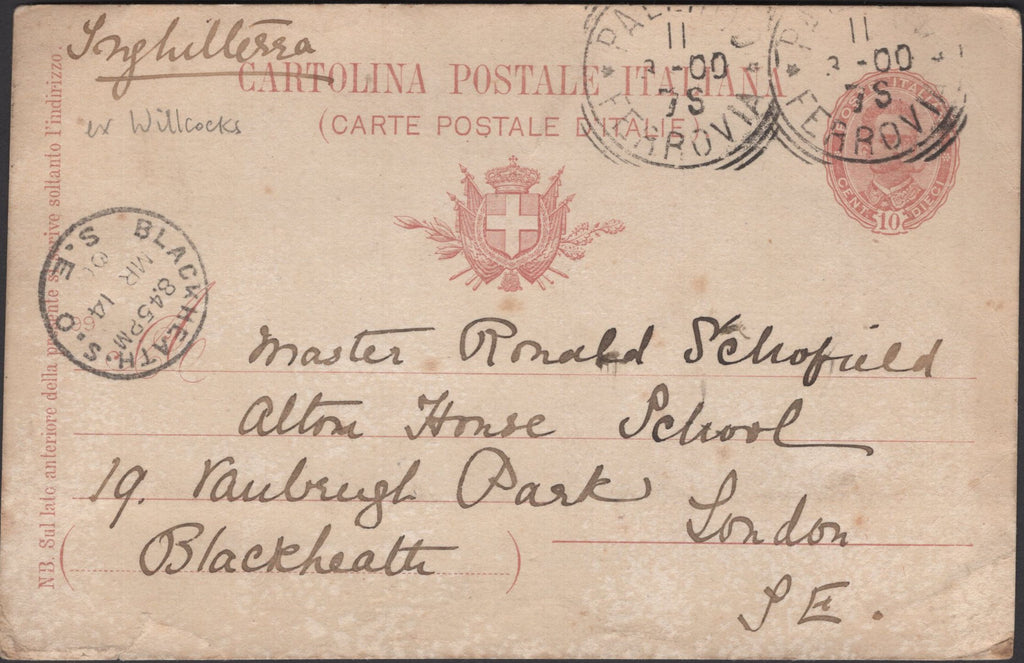 Inghilterra
CARTOLINA POSTALE ITALIANA
ex Willcocks
(CARTE POSTALE D'ITALIE)
11
3-00
7S
FERROVIA
11
3-00
7S
FERROVIA
POSTE ITALIANE
CENT. 10 DIECI
BLACKHEATH.S.O
S.E
8.45PM
MR 14
00
NB. Sul lato anteriore della presente si scrive soltanto l'indirizzo.
Master Ronald Schofield
Alton House School
19. Vanbrugh Park
London
Blackheath
S E.